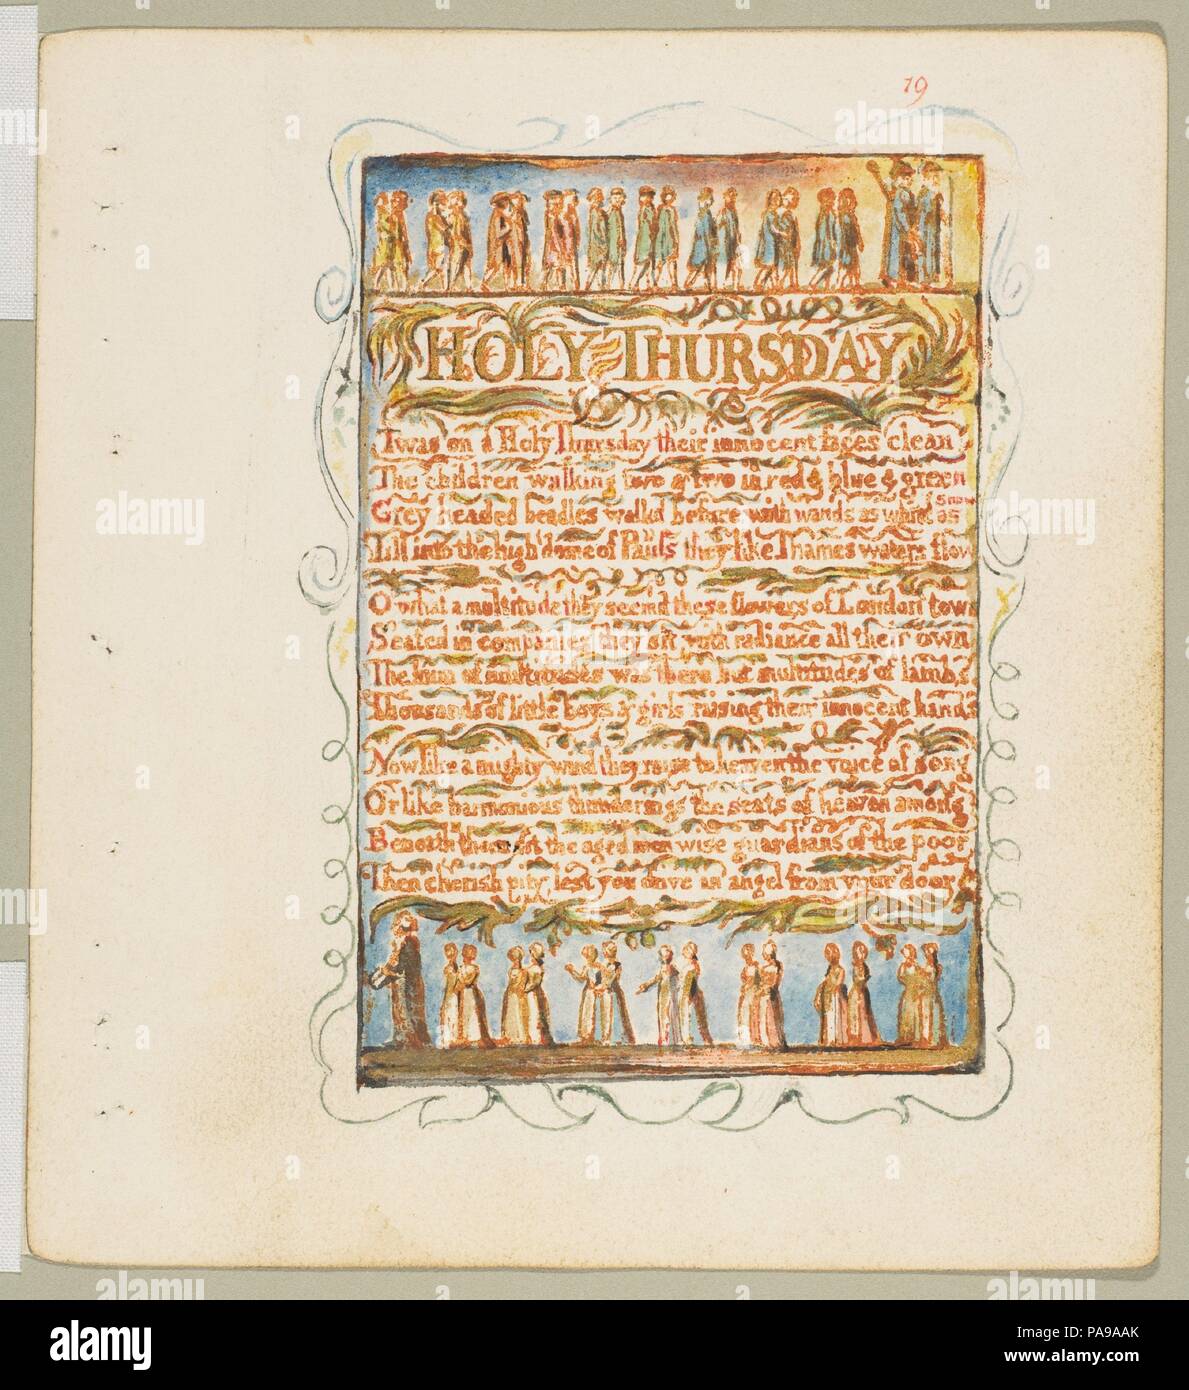 19
HOLY THURSDAY
Twas on a Holy Thursday their innocent faces clean
The children walking two & two in red & blue & green
Grey headed beadles walkd before with wands as white as snow
Till into the high dome of Pauls they like Thames waters flow
O what a multitude they seemd these flowers of London town
Seated in companies they sit with radiance all their own
The hum of multitudes was there but multitudes of lambs
Thousands of little boys & girls raising their innocent hands
Now like a mighty wind they raise to heaven the voice of song
Or like harmonious thunderings the seats of heaven among
Beneath them sit the aged men wise guardians of the poor
Then cherish pity, lest you drive an angel from your door
alamy
Image ID: PA9AAK
www.alamy.com